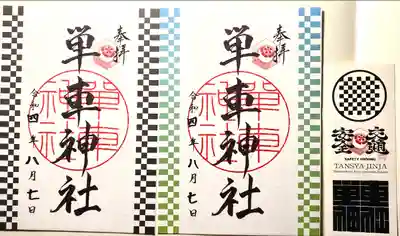 奉拝
単車神社
令和四年八月七日
奉拝
単車神社
令和四年八月七日
交通
安全
SAFETY RIDING
TANSYA JINJA